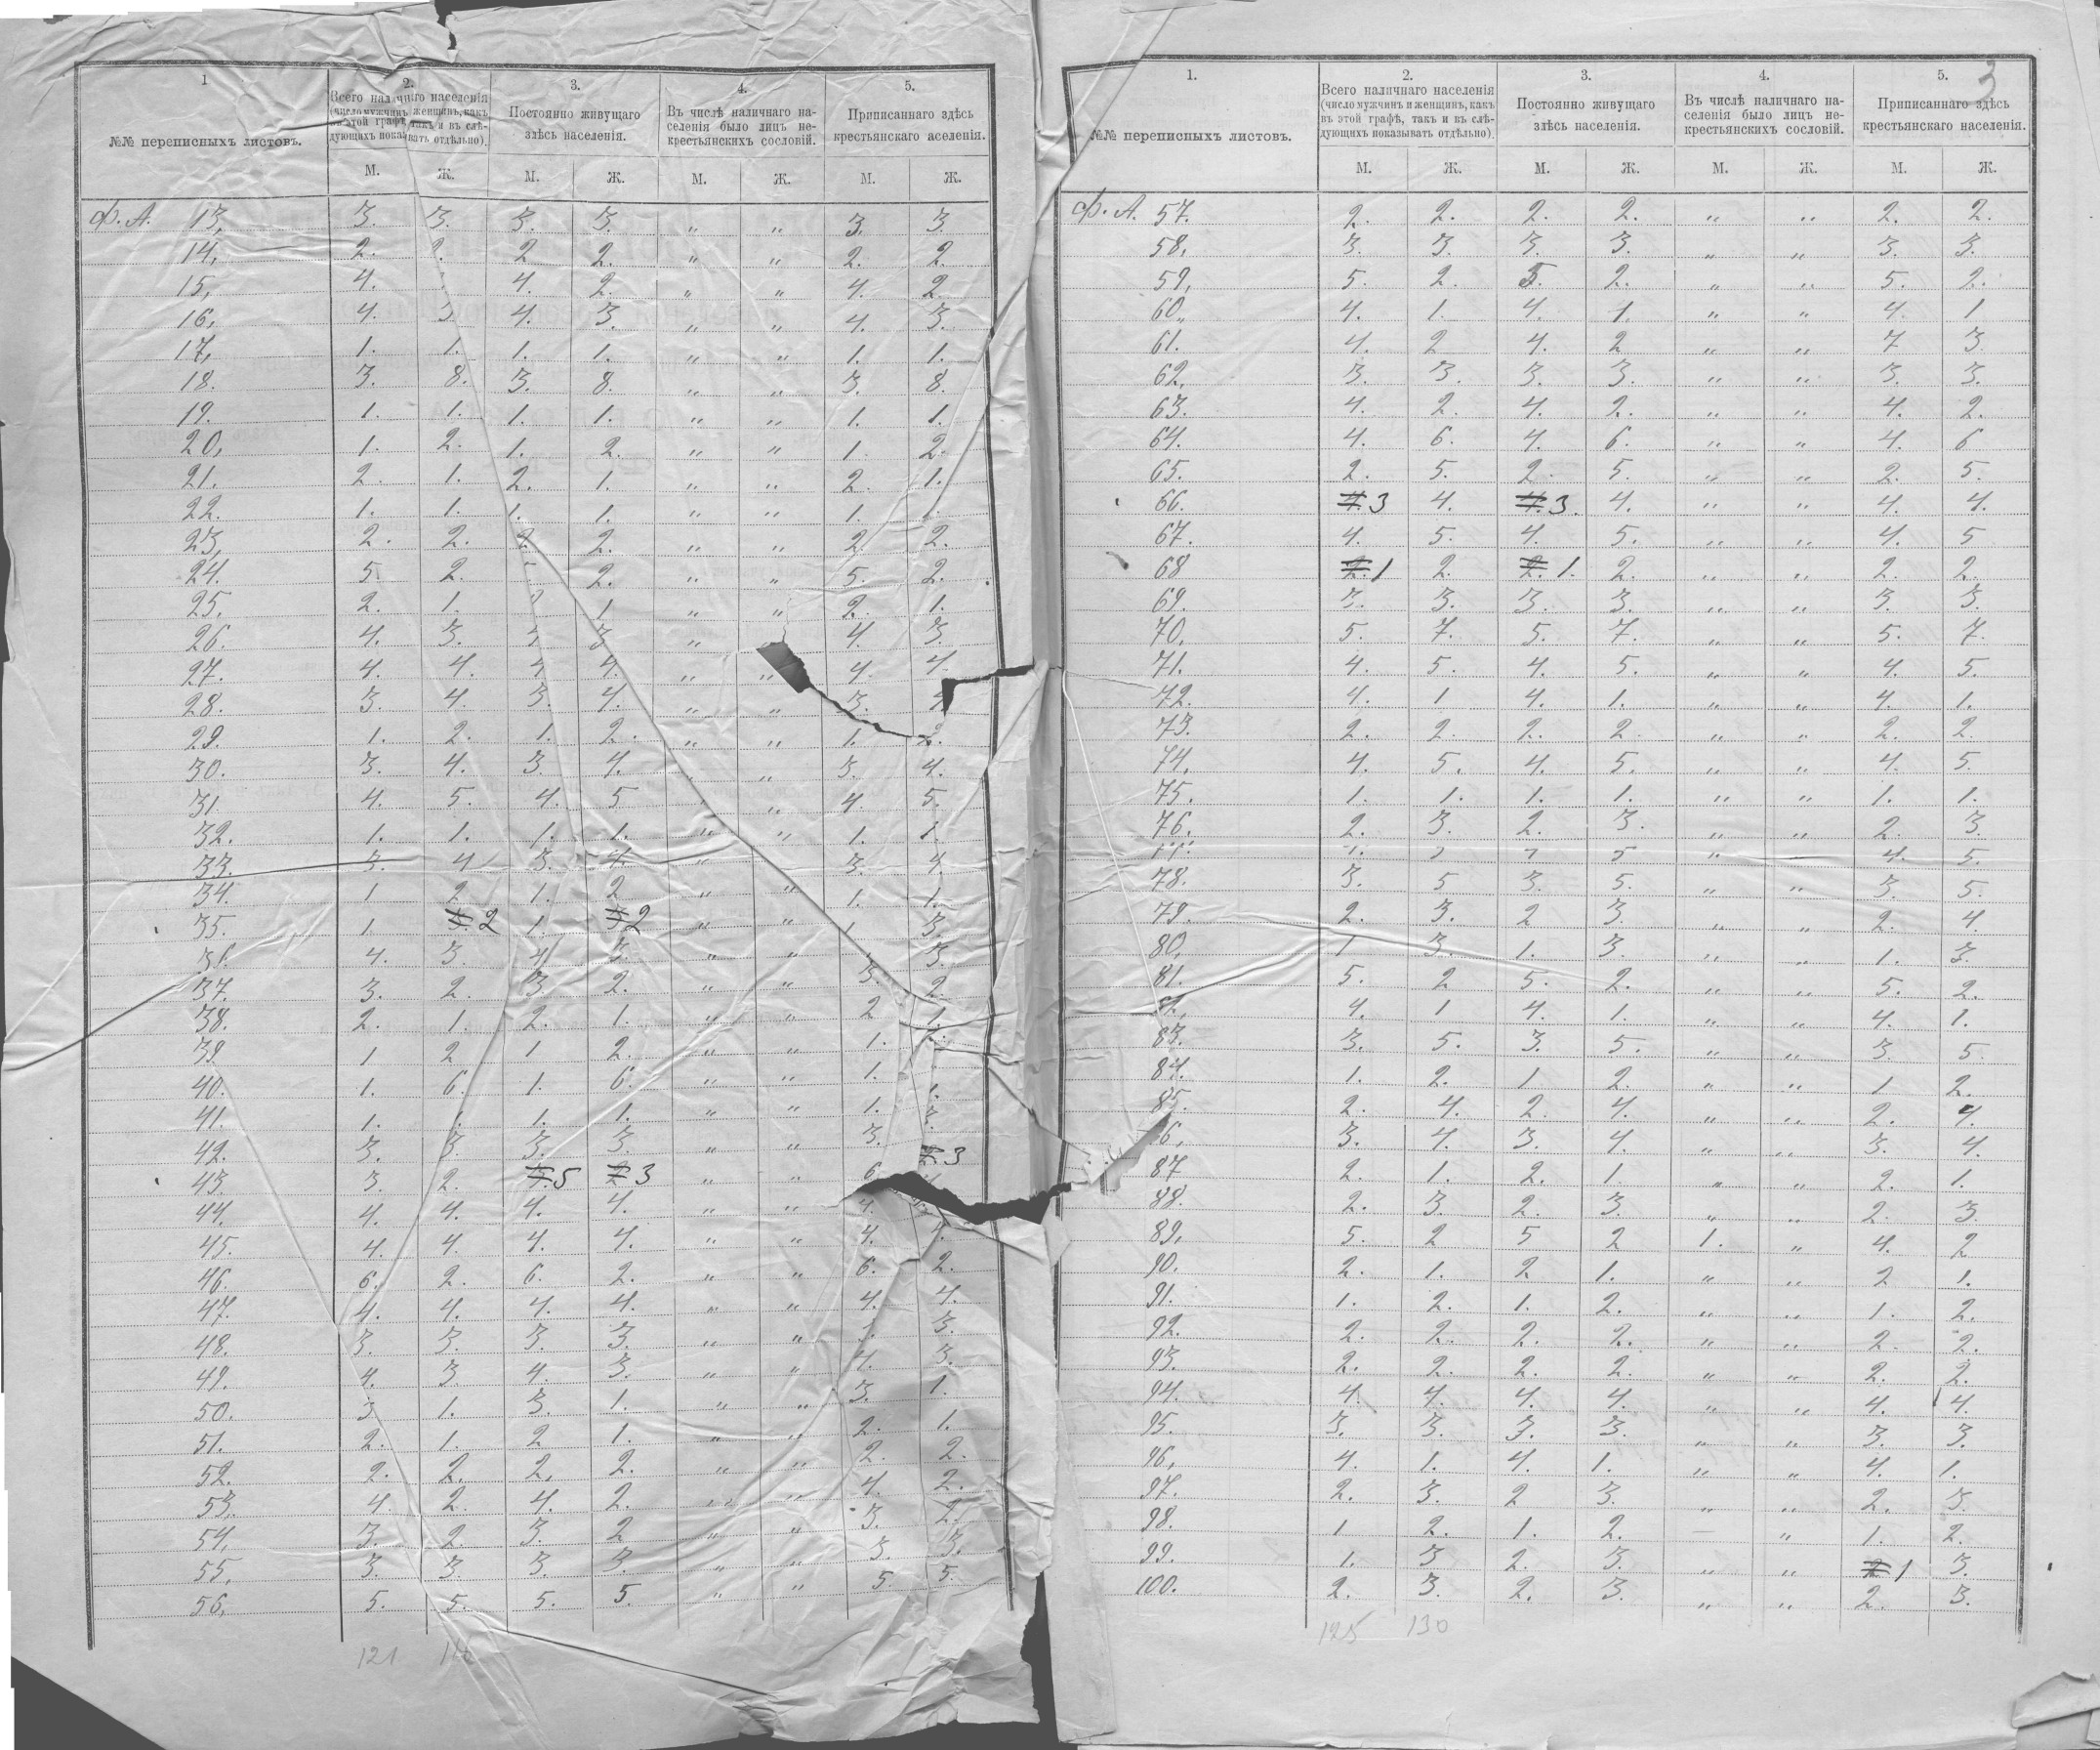 1 2. 3. 4. 5.
№№ переписныхъ листовъ. Всего наличнаго населенія (число мужчинъ и женщинъ, какъ въ этой графѣ, такъ и въ слѣдующихъ показывать отдѣльно). Постоянно живущаго здѣсь населенія. Въ числѣ наличнаго населенія было лицъ не-крестьянскихъ сословій. Приписаннаго здѣсь крестьянскаго аселенія.
М. Ж. М. Ж. М. Ж. М. Ж.
Ф. А. 13, 3. 3. 3. 3. „ „ 3. 3.
14, 2. 2. 2 2. „ „ 2. 2.
15, 4. 4. 2. „ „ 4. 2.
16, 4. 4. 3. „ „ 4. 3.
17, 1. 1. 1. 1. „ „ 1. 1.
18. 3. 8. 3. 8. „ „ 3. 8.
19. 1. 1. 1. 1. „ „ 1. 1.
20, 1. 2. 1. 2. „ „ 1. 2.
21. 2. 1. 2. 1. „ „ 2. 1.
22. 1. 1. 1. 1. „ „ 1. 1.
23, 2. 2. 2 2. „ „ 2. 2.
24. 5. 2. 2. „ „ 5. 2.
25, 2. 1. 2 1. „ „ 2. 1.
26. 4. 3. 4 3 „ 4. 3.
27. 4. 4. 4 4. „ „ 4. 4.
28. 3. 4. 3. 4. „ „ 3. 4
29. 1. 2. 1. 2. „ „ 1. 2.
30. 3. 4. 3. 4. „ „ 3. 4.
31. 4. 5. 4. 5 „ „ 4. 5.
32. 1. 1. 1. 1. „ „ 1. 1.
33. 3. 4 3. 4. „ 3. 4.
34. 1 2. 1. 2 „ „ 1. 1.
35. 1. 3 2 1. 3 2 „ „ 1. 3.
36. 4. 3. 4 3. „ „ 3.
37. 3. 2. 3. 2. „ „ 3. 2.
38. 2. 1. 2. 1. „ „ 2 1.
39. 1 2 1 2. „ „ 1.
40. 1. 6. 1. 6. „ „ 1.
41. 1. 1. 1. „ „ 1.
42. 3. 3. 3. 3. „ „ 3.
43. 3. 2. 5 3 „ „ 6 3
44. 4. 4. 4. 4. „ „ 4.
45. 4. 4. 4. 4. „ „ 4.
46. 6. 2. 6. 2. „ „ 6. 2.
47. 4. 4. 4. 4. „ „ 4. 4.
48. 3. 3. 3. 3. „ „ 3.
49. 4. 3 4. 3. „ „ 4. 3.
50. 3 1. 3. 1. „ „ 3. 1.
51. 2. 1. 2 1. „ „ 2. 1.
52. 2. 2. 2, 2. „ „ 2. 2.
53. 4. 2. 4. 2. „ „ 4. 2.
54, 3. 2. 3. 2 „ „ 3. 2.
55, 3. 3. 3. 3. „ „ 3. 3.
56, 5. 5. 5. 5. „ „ 5 5.
121
3
1. 2. 3. 4. 5.
№№ переписныхъ листовъ. Всего наличнаго населенія (число мужчинъ и женщинъ, какъ въ этой графѣ, такъ и въ слѣдующихъ показывать отдѣльно). Постоянно живущаго здѣсь населенія. Въ числѣ наличнаго населенія было лицъ не-крестьянскихъ сословій. Приписаннаго здѣсь крестьянскаго населенія.
М. Ж. М. Ж. М. Ж. М. Ж.
Ф. А. 57. 2. 2. 2. 2. „ „ 2. 2.
58, 3. 3. 3. 3. „ „ 3. 3.
59, 5. 2. 5. 2. „ „ 5. 2.
60, 4. 1. 4. 1. „ „ 4. 1
61. 4. 2 4. 2 „ „ 7 3
62, 3. 3. 3. 3. „ „ 3. 3.
63. 4. 2. 4. 2. „ „ 4. 2.
64. 4. 6. 4. 6. „ „ 4. 6
65. 2. 5. 2. 5. „ „ 2. 5.
66. 4. 3 4. 4. 3. 4. „ „ 4. 4.
67. 4. 5. 4. 5. „ „ 4. 5
68 2. 1 2. 2. 1. 2. „ „ 2. 2.
69. 3. 3. 3. 3. „ „ 3. 3.
70. 5. 7. 5. 7. „ „ 5. 7.
71. 4. 5. 4. 5. „ „ 4. 5.
72. 4. 1 4. 1. „ „ 4. 1.
73. 2. 2. 2. 2. „ „ 2. 2.
74, 4. 5. 4. 5. „ „ 4. 5.
75. 1. 1. 1. 1. „ „ 1. 1.
76. 2. 3. 2. 3. „ „ 2. 3.
„ „ 4. 5.
78. 3. 5 3. 5. „ „ 3. 5.
79. 2. 3. 2 3. „ „ 2. 4.
80, 1 3. 1. 3. „ „ 1. 3.
81. 5. 2 5. 2. „ „ 5. 2.
82, 4. 1 4. 1. „ „ 4. 1.
83. 3. 5. 3. 5. „ „ 3. 5.
84. 1. 2. 1 2. „ „ 1 2.
85. 2. 4. 2. 4. „ „ 2. 4.
6, 3. 4. 3. 4. „ „ 3. 4.
87 2. 1. 2. 1. „ „ 2. 1.
88. 2. 3. 2. 3. „ „ 2. 3.
89, 5. 2 5 2 1. „ 4. 2
90. 2. 1. 2 1. „ „ 2 1.
91. 1. 2. 1. 2. „ „ 1. 2.
92. 2. 2. 2. 2. „ „ 2. 2.
93. 2. 2. 2. 2. „ „ 2. 2.
94. 4. 4. 4. 4. „ „ 4. 4.
95. 3. 3. 3. 3. „ „ 3. 3.
96, 4. 1. 4. 1. „ „ 4. 1.
97. 2. 3. 2 3. „ „ 2. 3.
98. 1 2. 1. 2. „ 1. 2.
99. 1. 3 2. 3. „ „ 2 1 3.
100. 2. 3. 2. 3. „ „ 2. 3.
125 130